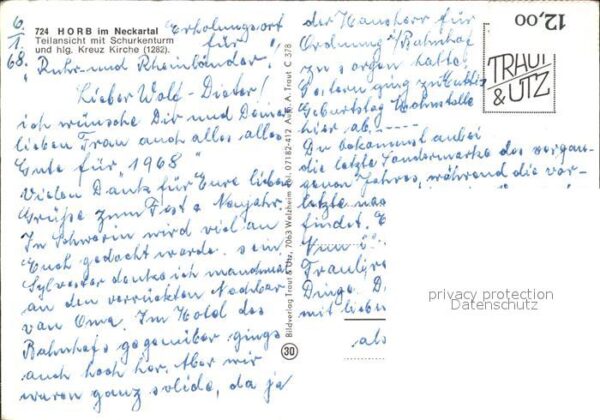 6.
1.
68.
724 HORB im Neckartal
Teilansicht mit Schurkenturm
und hlg. Kreuz Kirche (1282).
Erholungsort
für
"Ruhr- und Rheinländer"
Lieber Wolf-Dieter!
ich wünsche Dir und Deiner
lieben Frau auch alles alles
Gute für "1968"
Vielen Dank für Eure lieben
Grüße zum Fest & Neujahr
In Schwerin wird viel an
Euch gedacht worden. sein
Sylvester denke ich manchmal
an den verrückten Nachbar
von Oma. Im Hotel des
Bahnhofs gegenüber gings
auch hoch her. Aber wir
waren ganz solide, da ja
der Hausherr für
Ordnung i/Bahnhof
zu sorgen hatte.
Gestern ging zu
Geburtstag
hier ab.----
Du bekommst anbei
die letzte Sondermarke des vergan-
genen Jahres, während die vor-
letzte
findet.
mit lieben
als
Bildverlag Traut & Utz, 7063 Welzheim Tel. 07182-412 Aufn. A. Traut C 378
30
TRAUT
& UTZ
12,00
privacy protection
Datenschutz